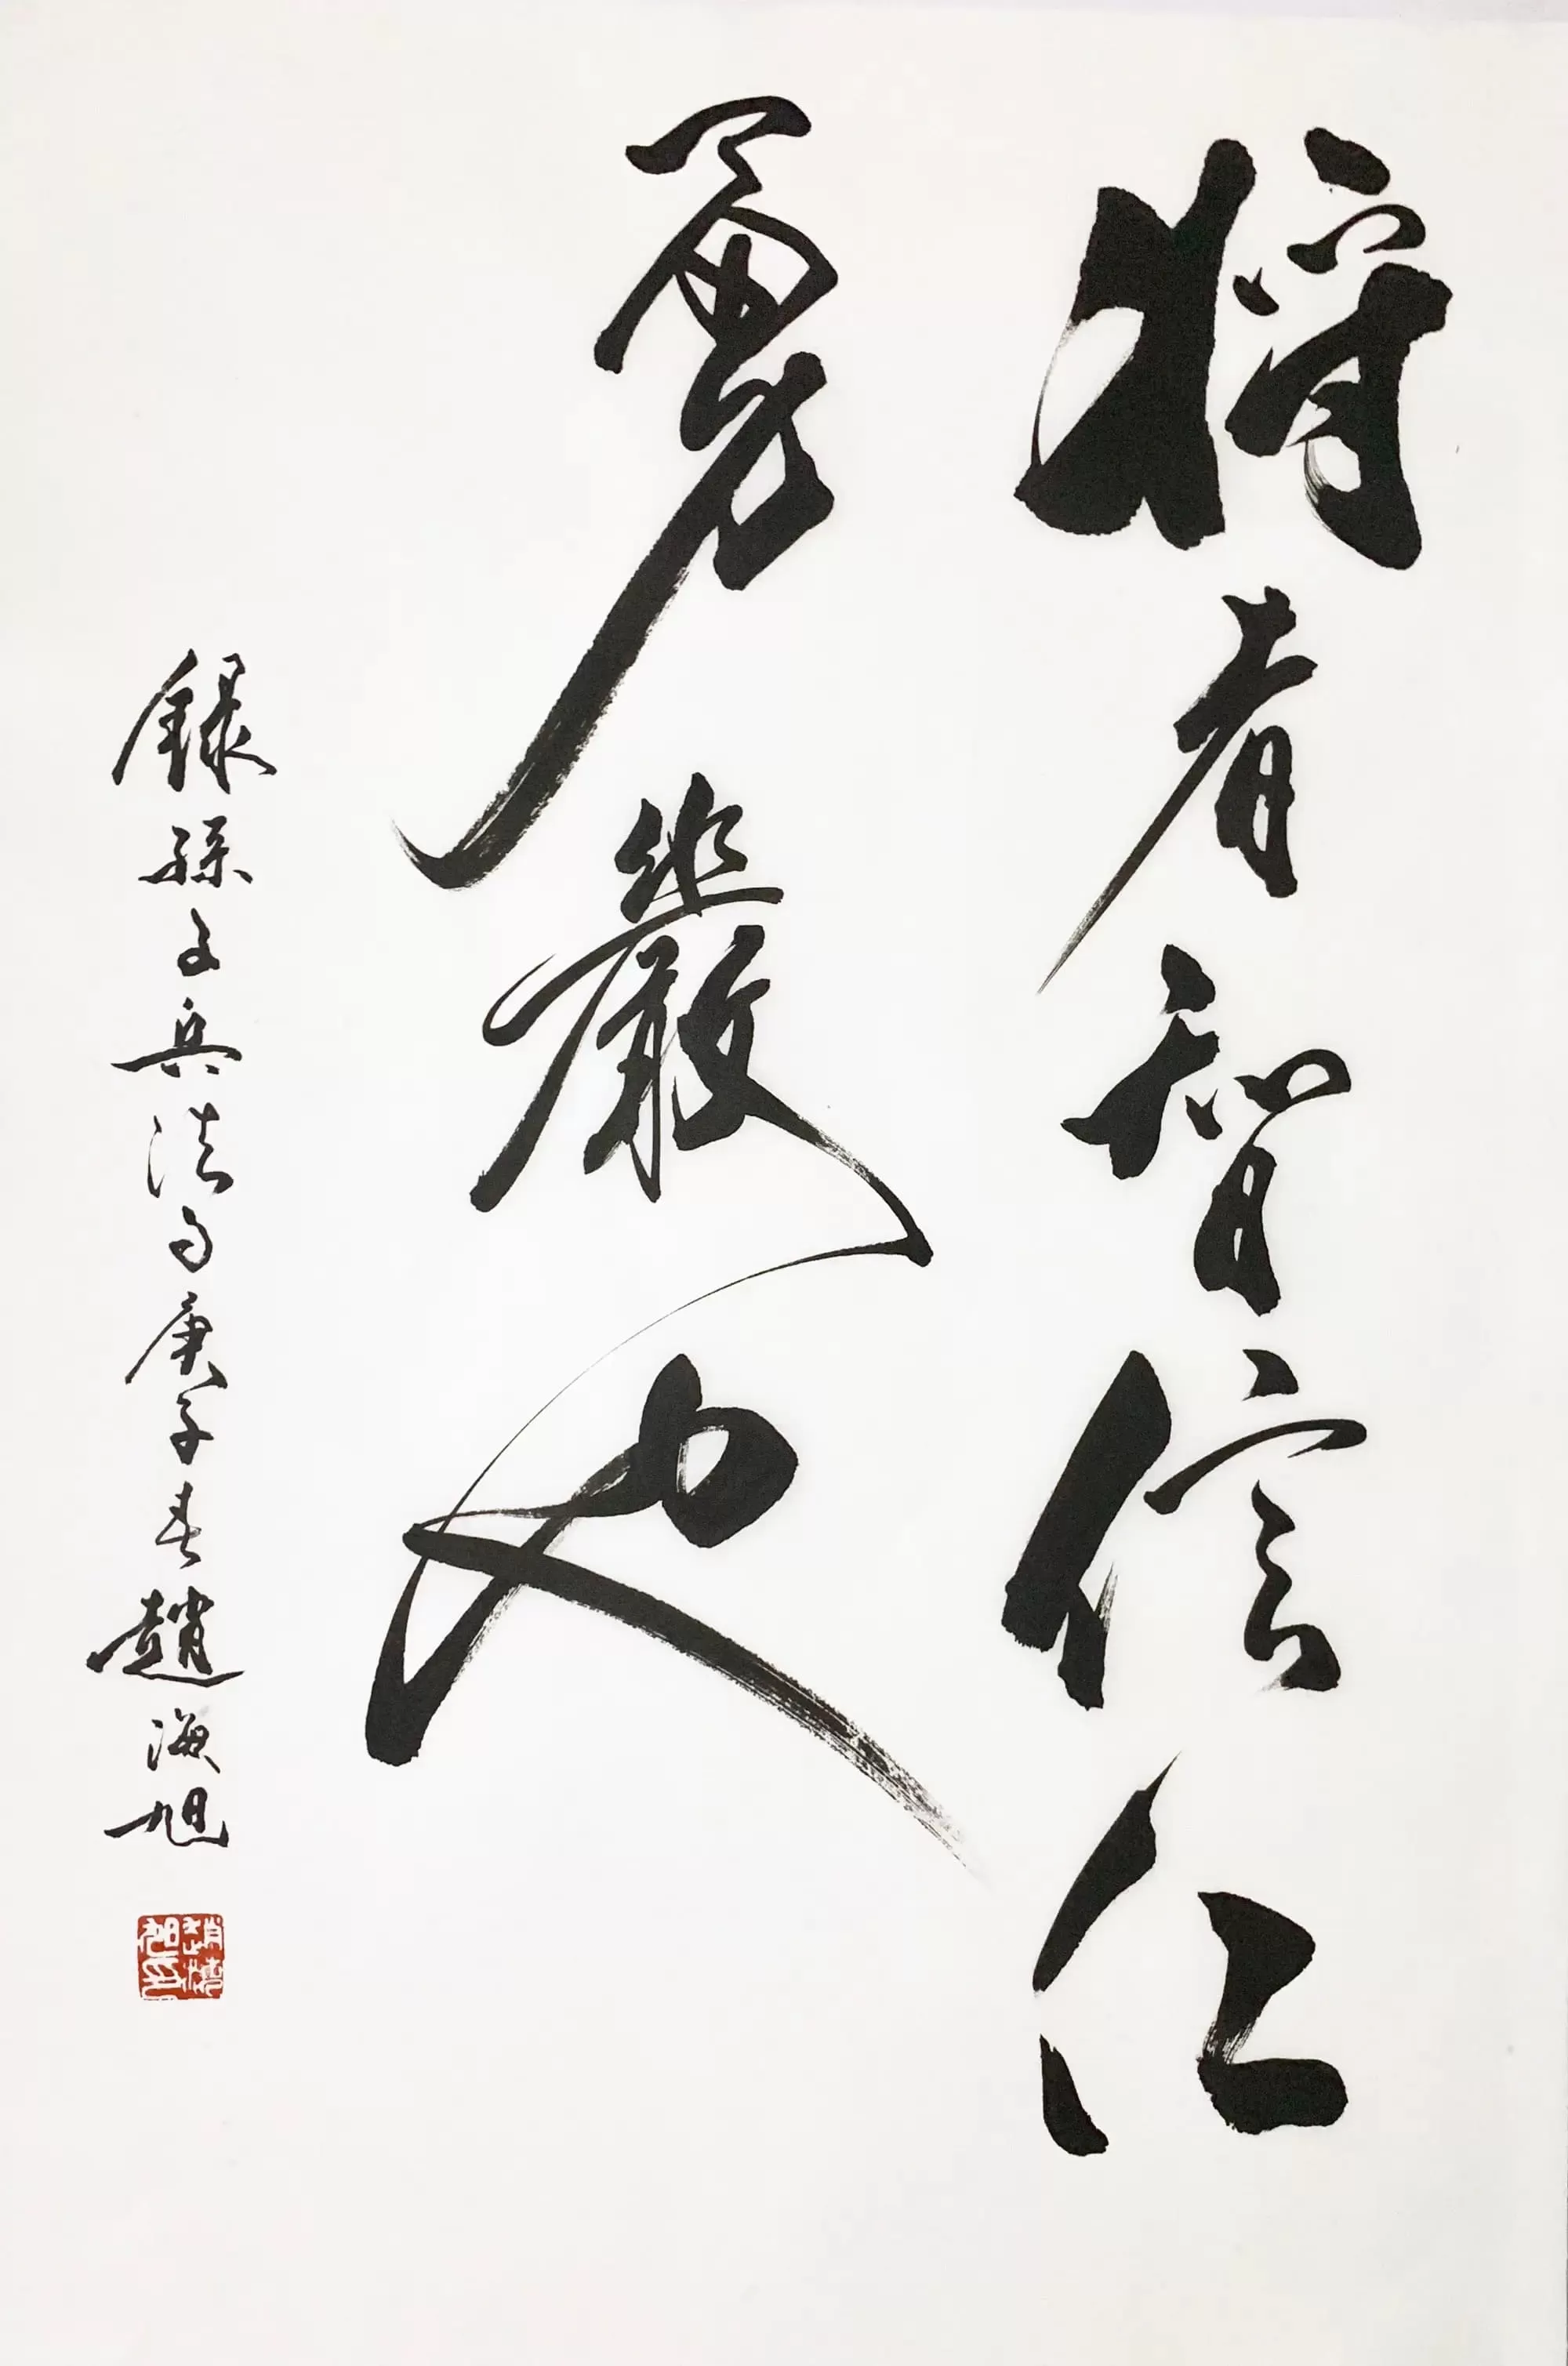 將者智信仁
勇嚴也
錄孫子兵法句庚子春趙海旭
趙海旭印